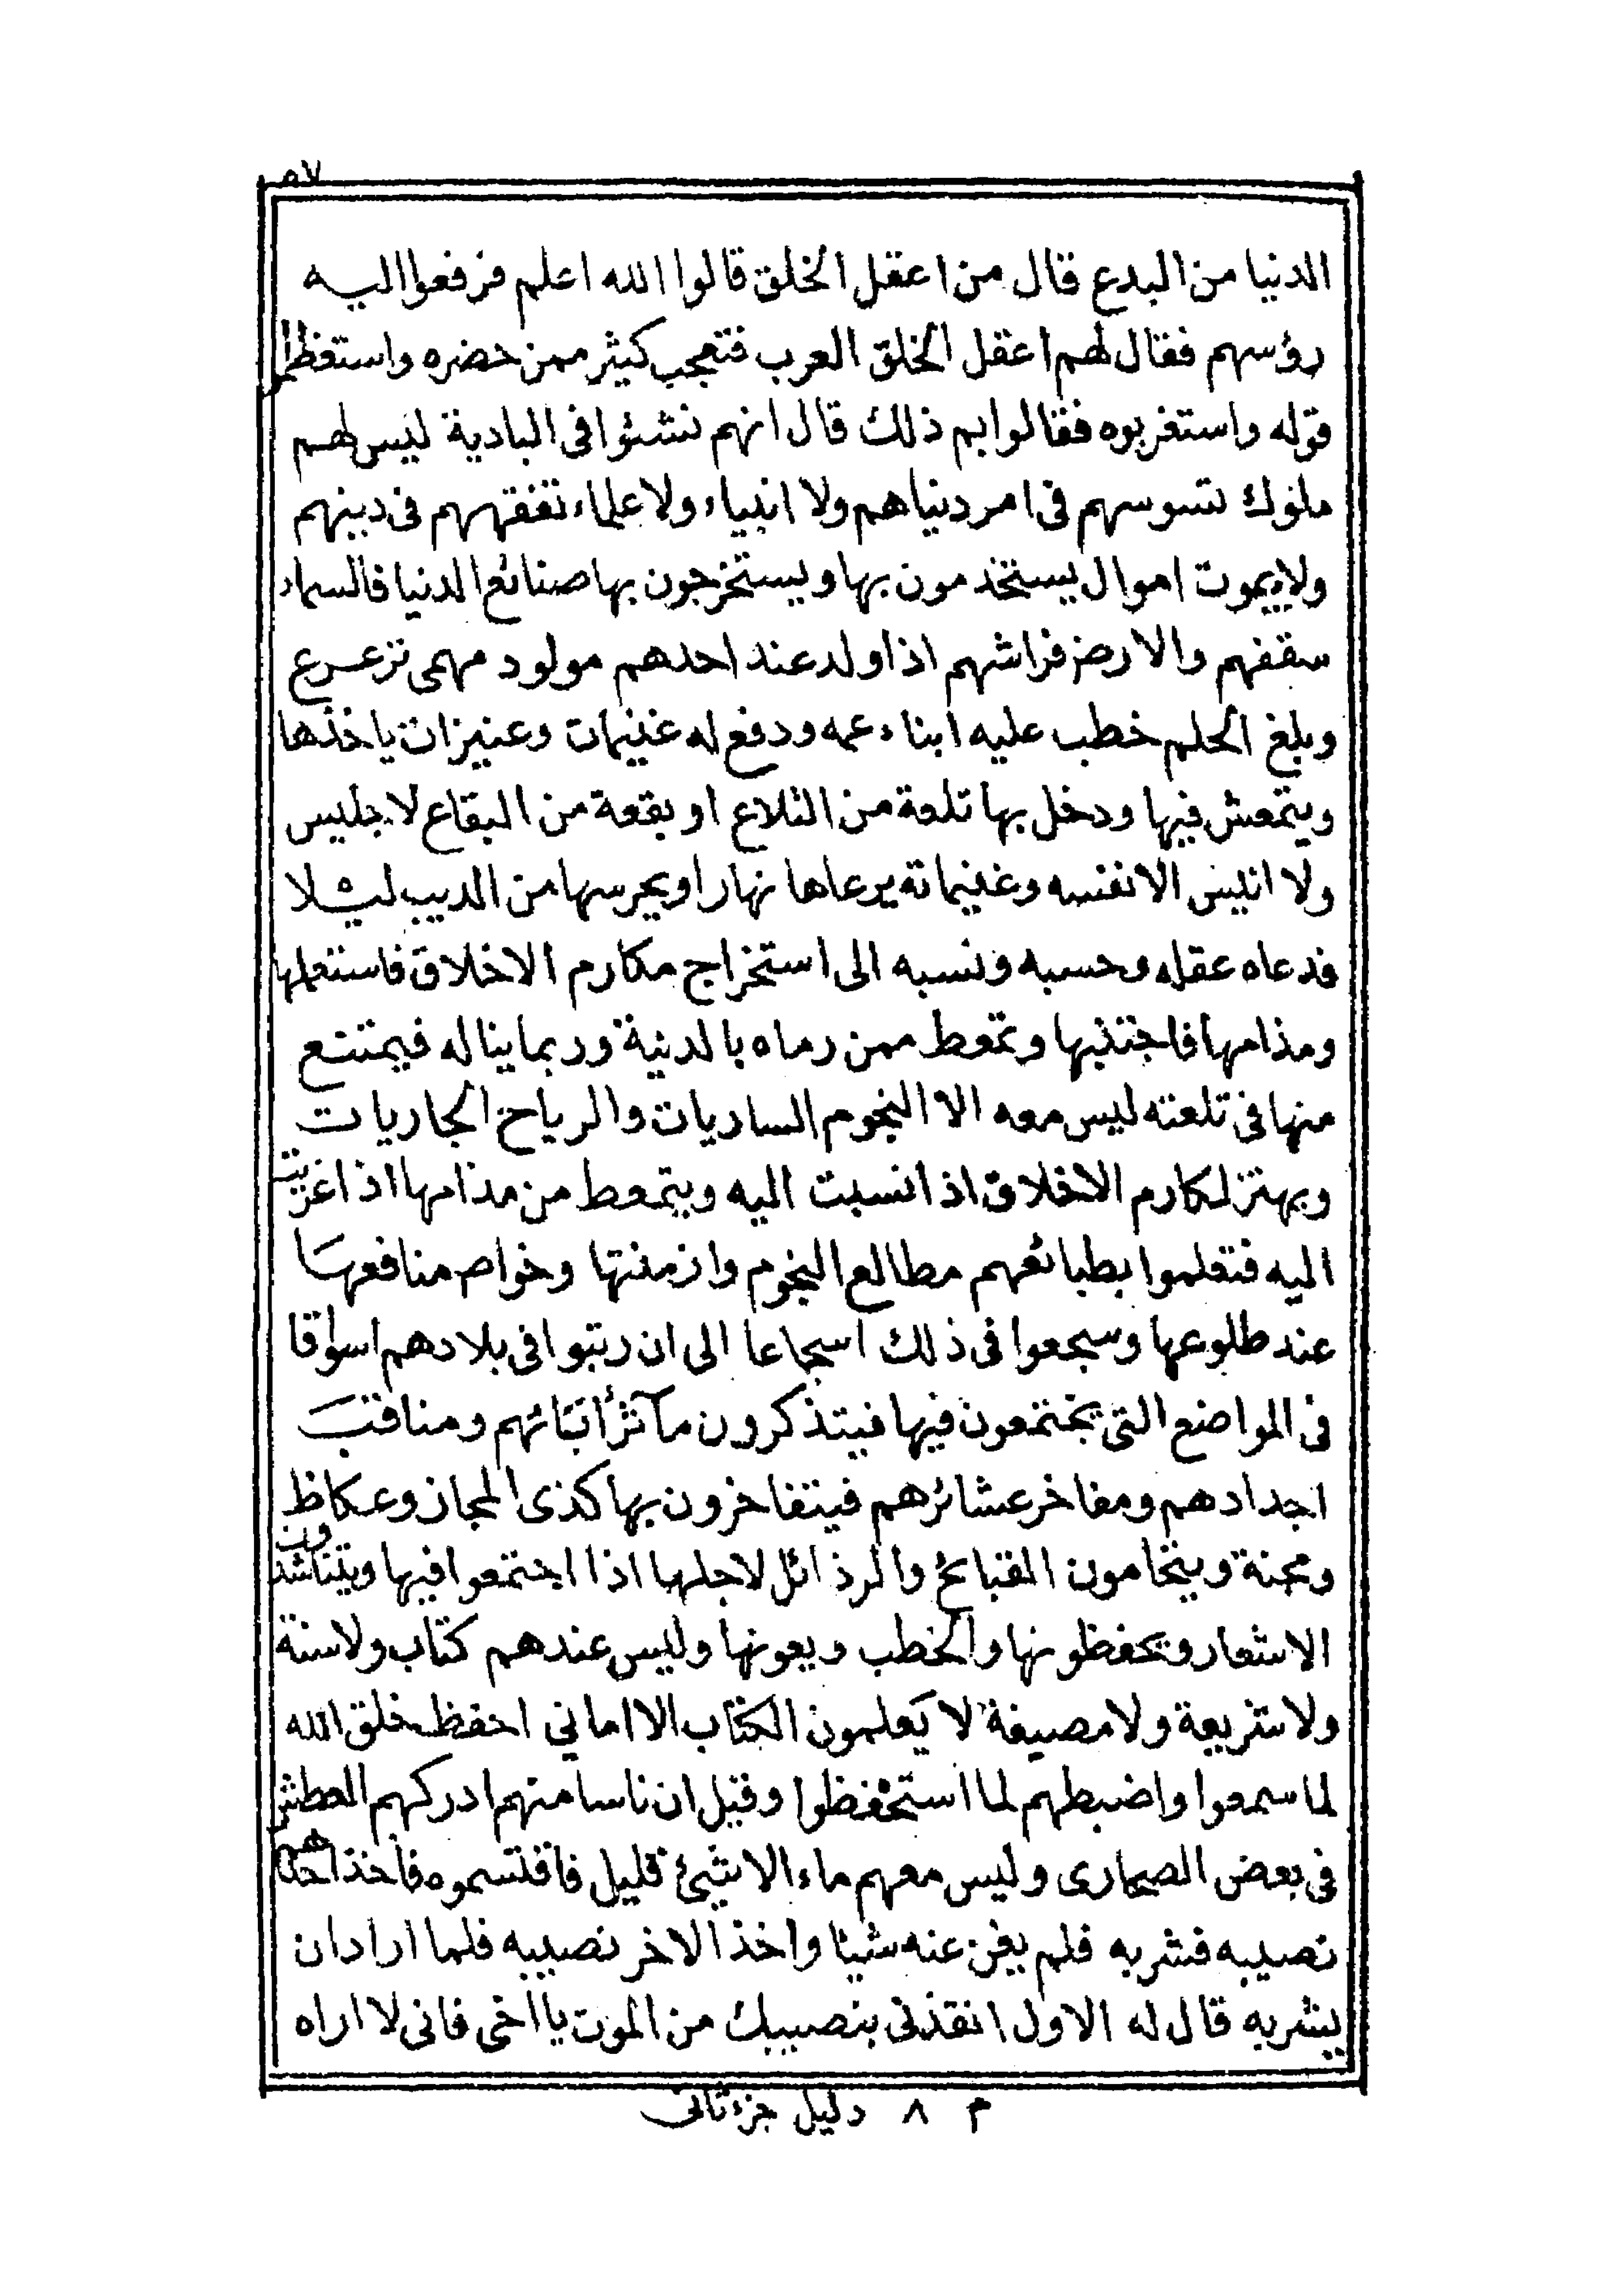 ٥٧
الدنيا من البدع قال من اعقل الخلق قالوا الله اعلم فرفعوا اليه
رؤسهم فقال لهم اعقل الخلق العرب فتعجب كثير ممن حضره واستعظموا
قوله واستغربوه فقالوا بم ذلك قال انهم نشئوا فى البادية ليس لهم
ملوك تسوسهم فى امر دنياهم ولا انبياء ولا علماء تفقههم فى دينهم
ولا بيوت اموال يستخدمون بها ويستخرجون بها صنائع الدنيا فالسماء
سقفهم والارض فراشهم اذا ولد عند احدهم مولود مهمى ترعرع
وبلغ الحلم خطب عليه ابناء عمه ودفع له غنيمات وعنيزات ياخذها
ويتمعش فيها ودخل بها تلعة من التلاع او بقعة من البقاع لا جليس
ولا انيس الا نفسه وغنيماته يرعاها نهارا ويحرسها من الديب ليلا
فدعاه عقله وحسبه ونسبه الى استخراج مكارم الاخلاق فاستعملها
ومذامها فاجتنبها وتمعط ممن رماه بالدنية وربما يناله فيمتنع
منها فى تلعته ليس معه الا النجوم الساريات والرياح الجاريات
ويهتز لمكارم الاخلاق اذا نسبت اليه ويتمعط من مذامها اذا عزيت
اليه فتعلموا بطبائعهم مطالع النجوم وازمنتها وخواص منافعها
عند طلوعها وسجعوا فى ذلك اسجاعا الى ان رتبوا فى بلادهم اسواقا
فى المواضع التى يجتمعون فيها فيتذكرون مآثر أبائهم ومناقب
اجدادهم ومفاخر عشائرهم فيتفاخرون بها كذى المجاز وعكاظ
ومجنة ويتحامون القبائح والرذائل لاجلها اذا اجتمعوا فيها ويتناشدون
الاشعار ويحفظونها والخطب ويعونها وليس عندهم كتاب ولا سنة
ولا شريعة ولا صحيفة لا يعلمون الكتاب الا اماني احفظ خلق الله
لما سمعوا واضبطهم لما استحفظوا وقيل ان ناسا منهم ادركهم العطش
فى بعض الصحارى وليس معهم ماء الا شيئ قليل فاقتسموه فاخذ احدهم
نصيبه فشربه فلم يغن عنه شيئا واخذ الاخر نصيبه فلما اراد ان
يشربه قال له الاول انقذنى بنصيبك من الموت يا اخى فانى لا اراه
م ٨ دليل جزء ثانى